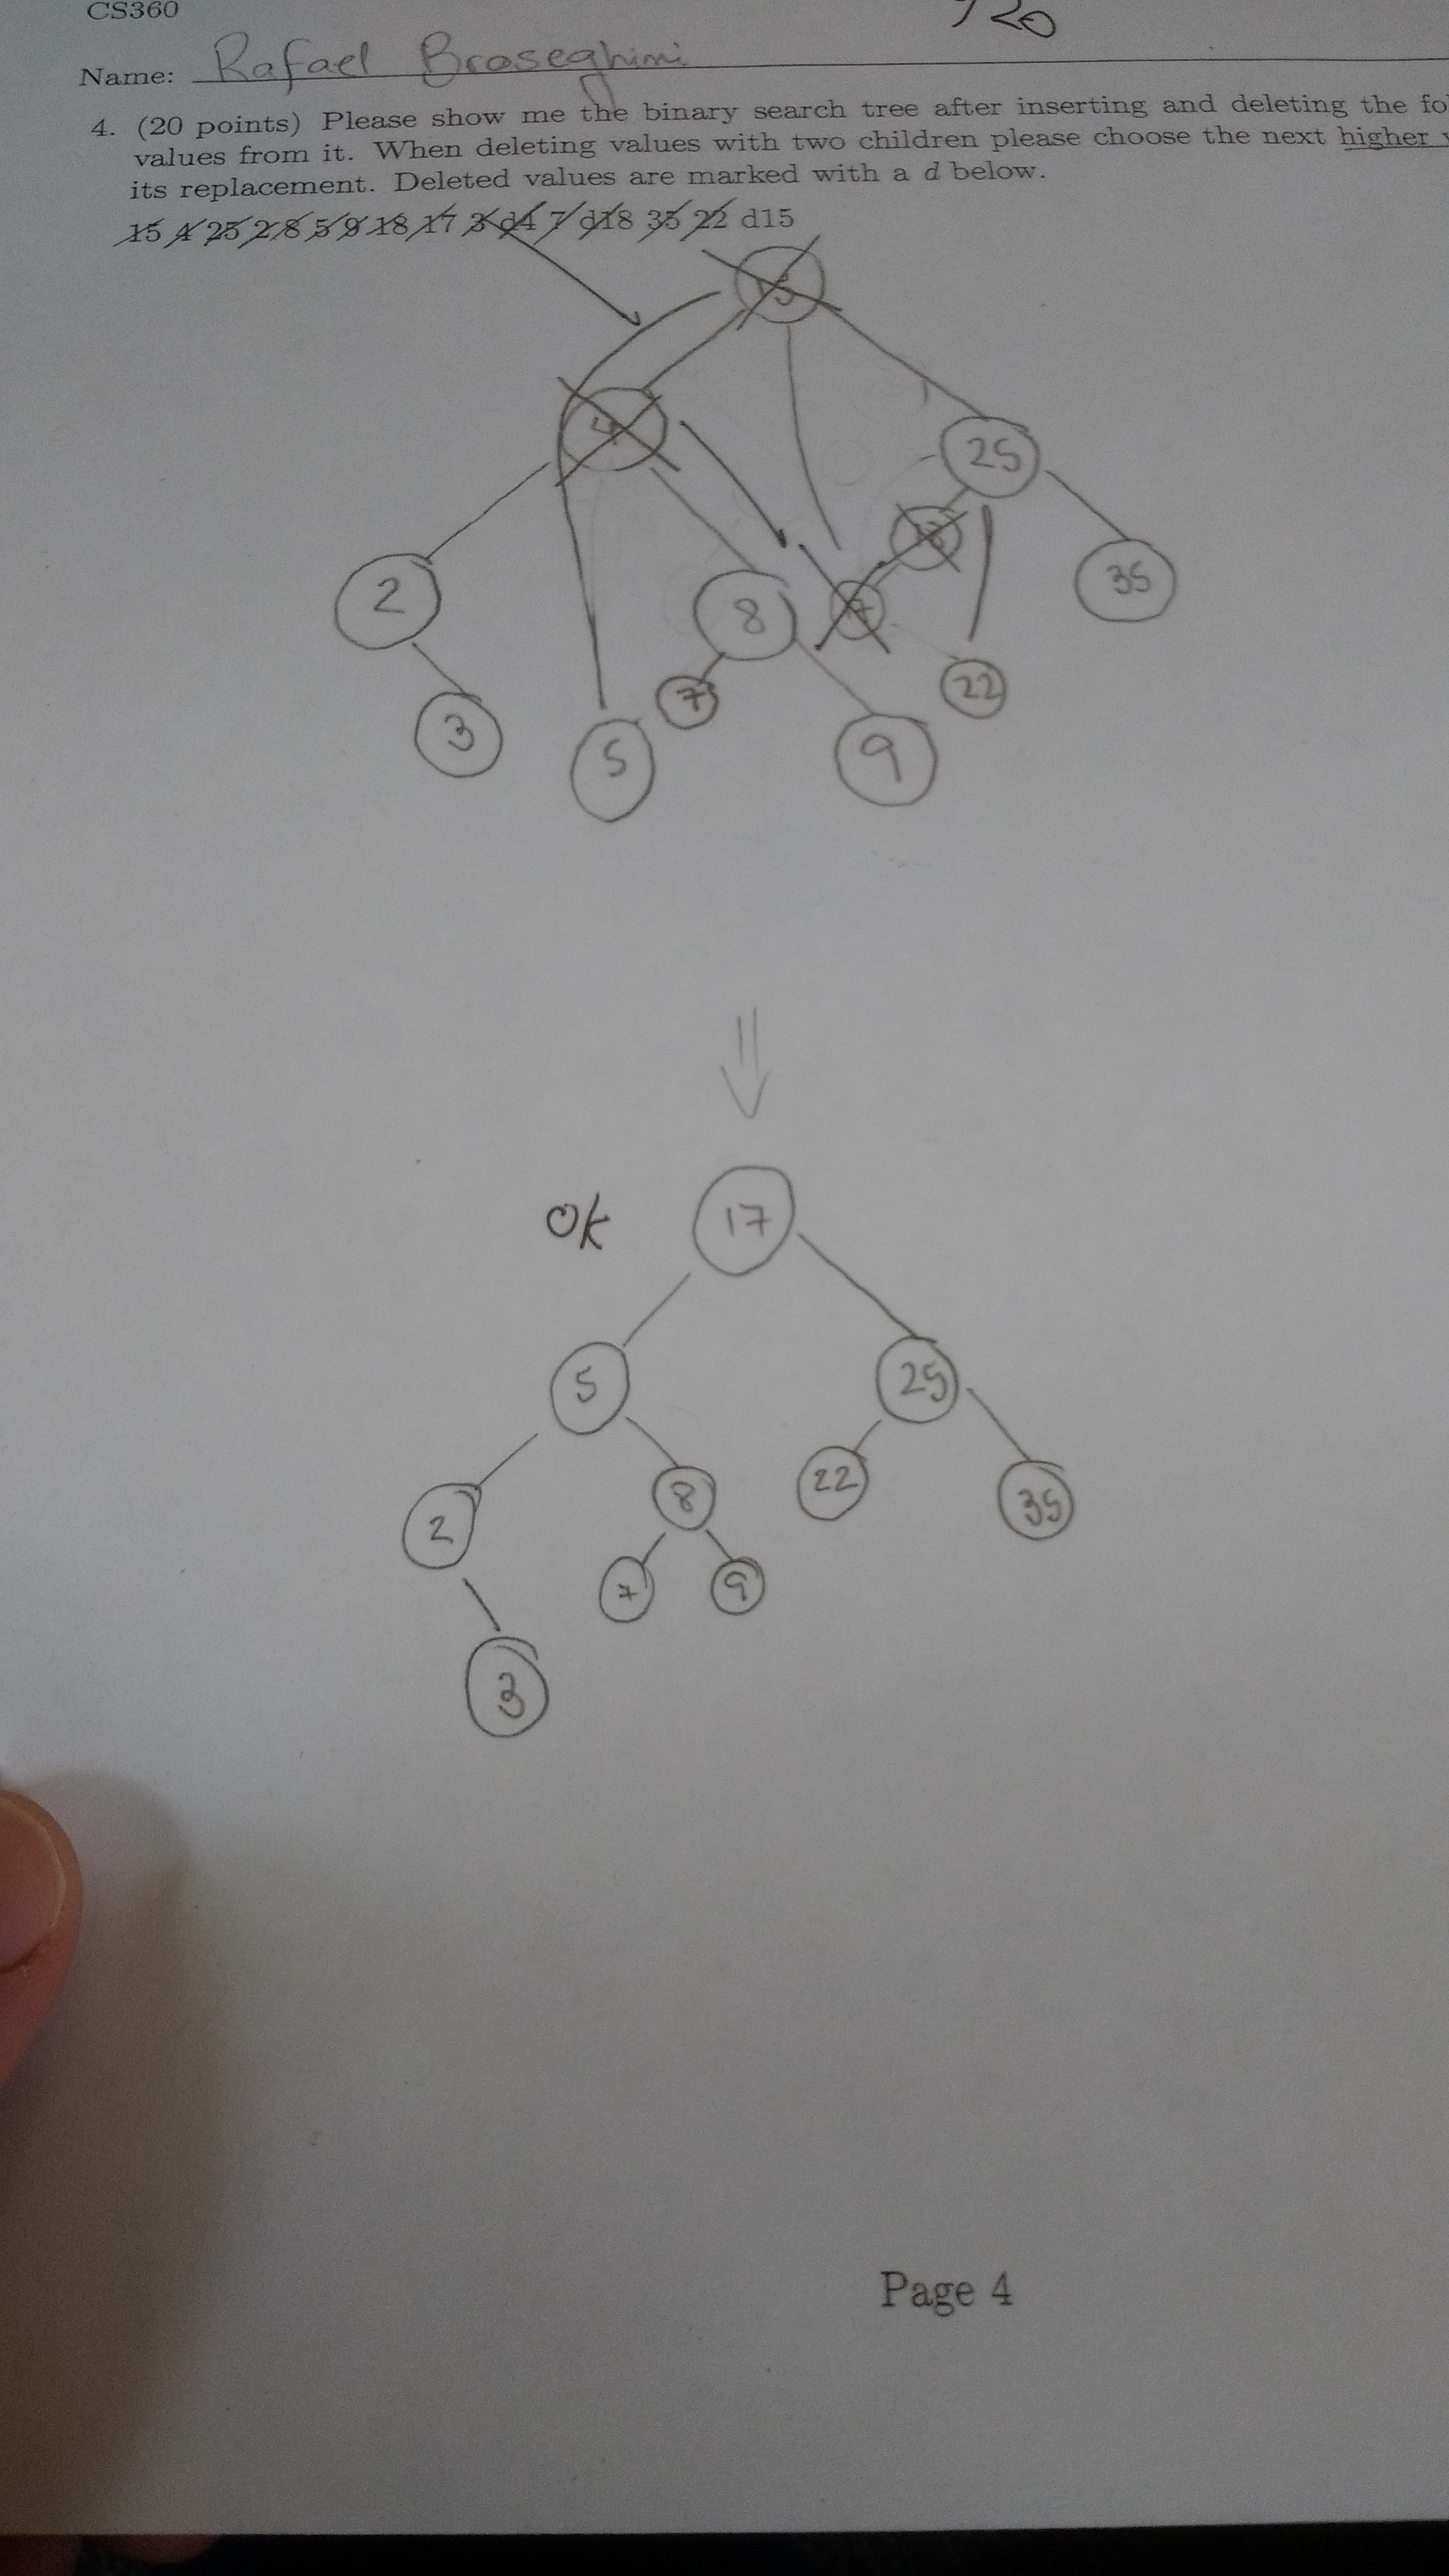 CS360
/20
Name: Rafael Broseghini
4. (20 points) Please show me the binary search tree after inserting and deleting the
values from it. When deleting values with two children please choose the next higher
its replacement. Deleted values are marked with a d below.
15 4 25 2 8 5 9 18 17 3 d4 7 d18 35 22 d15
15
4
25
18
2
8
17
35
7
22
3
5
9
17
ok
5
25
2
8
22
35
7
9
3
Page 4